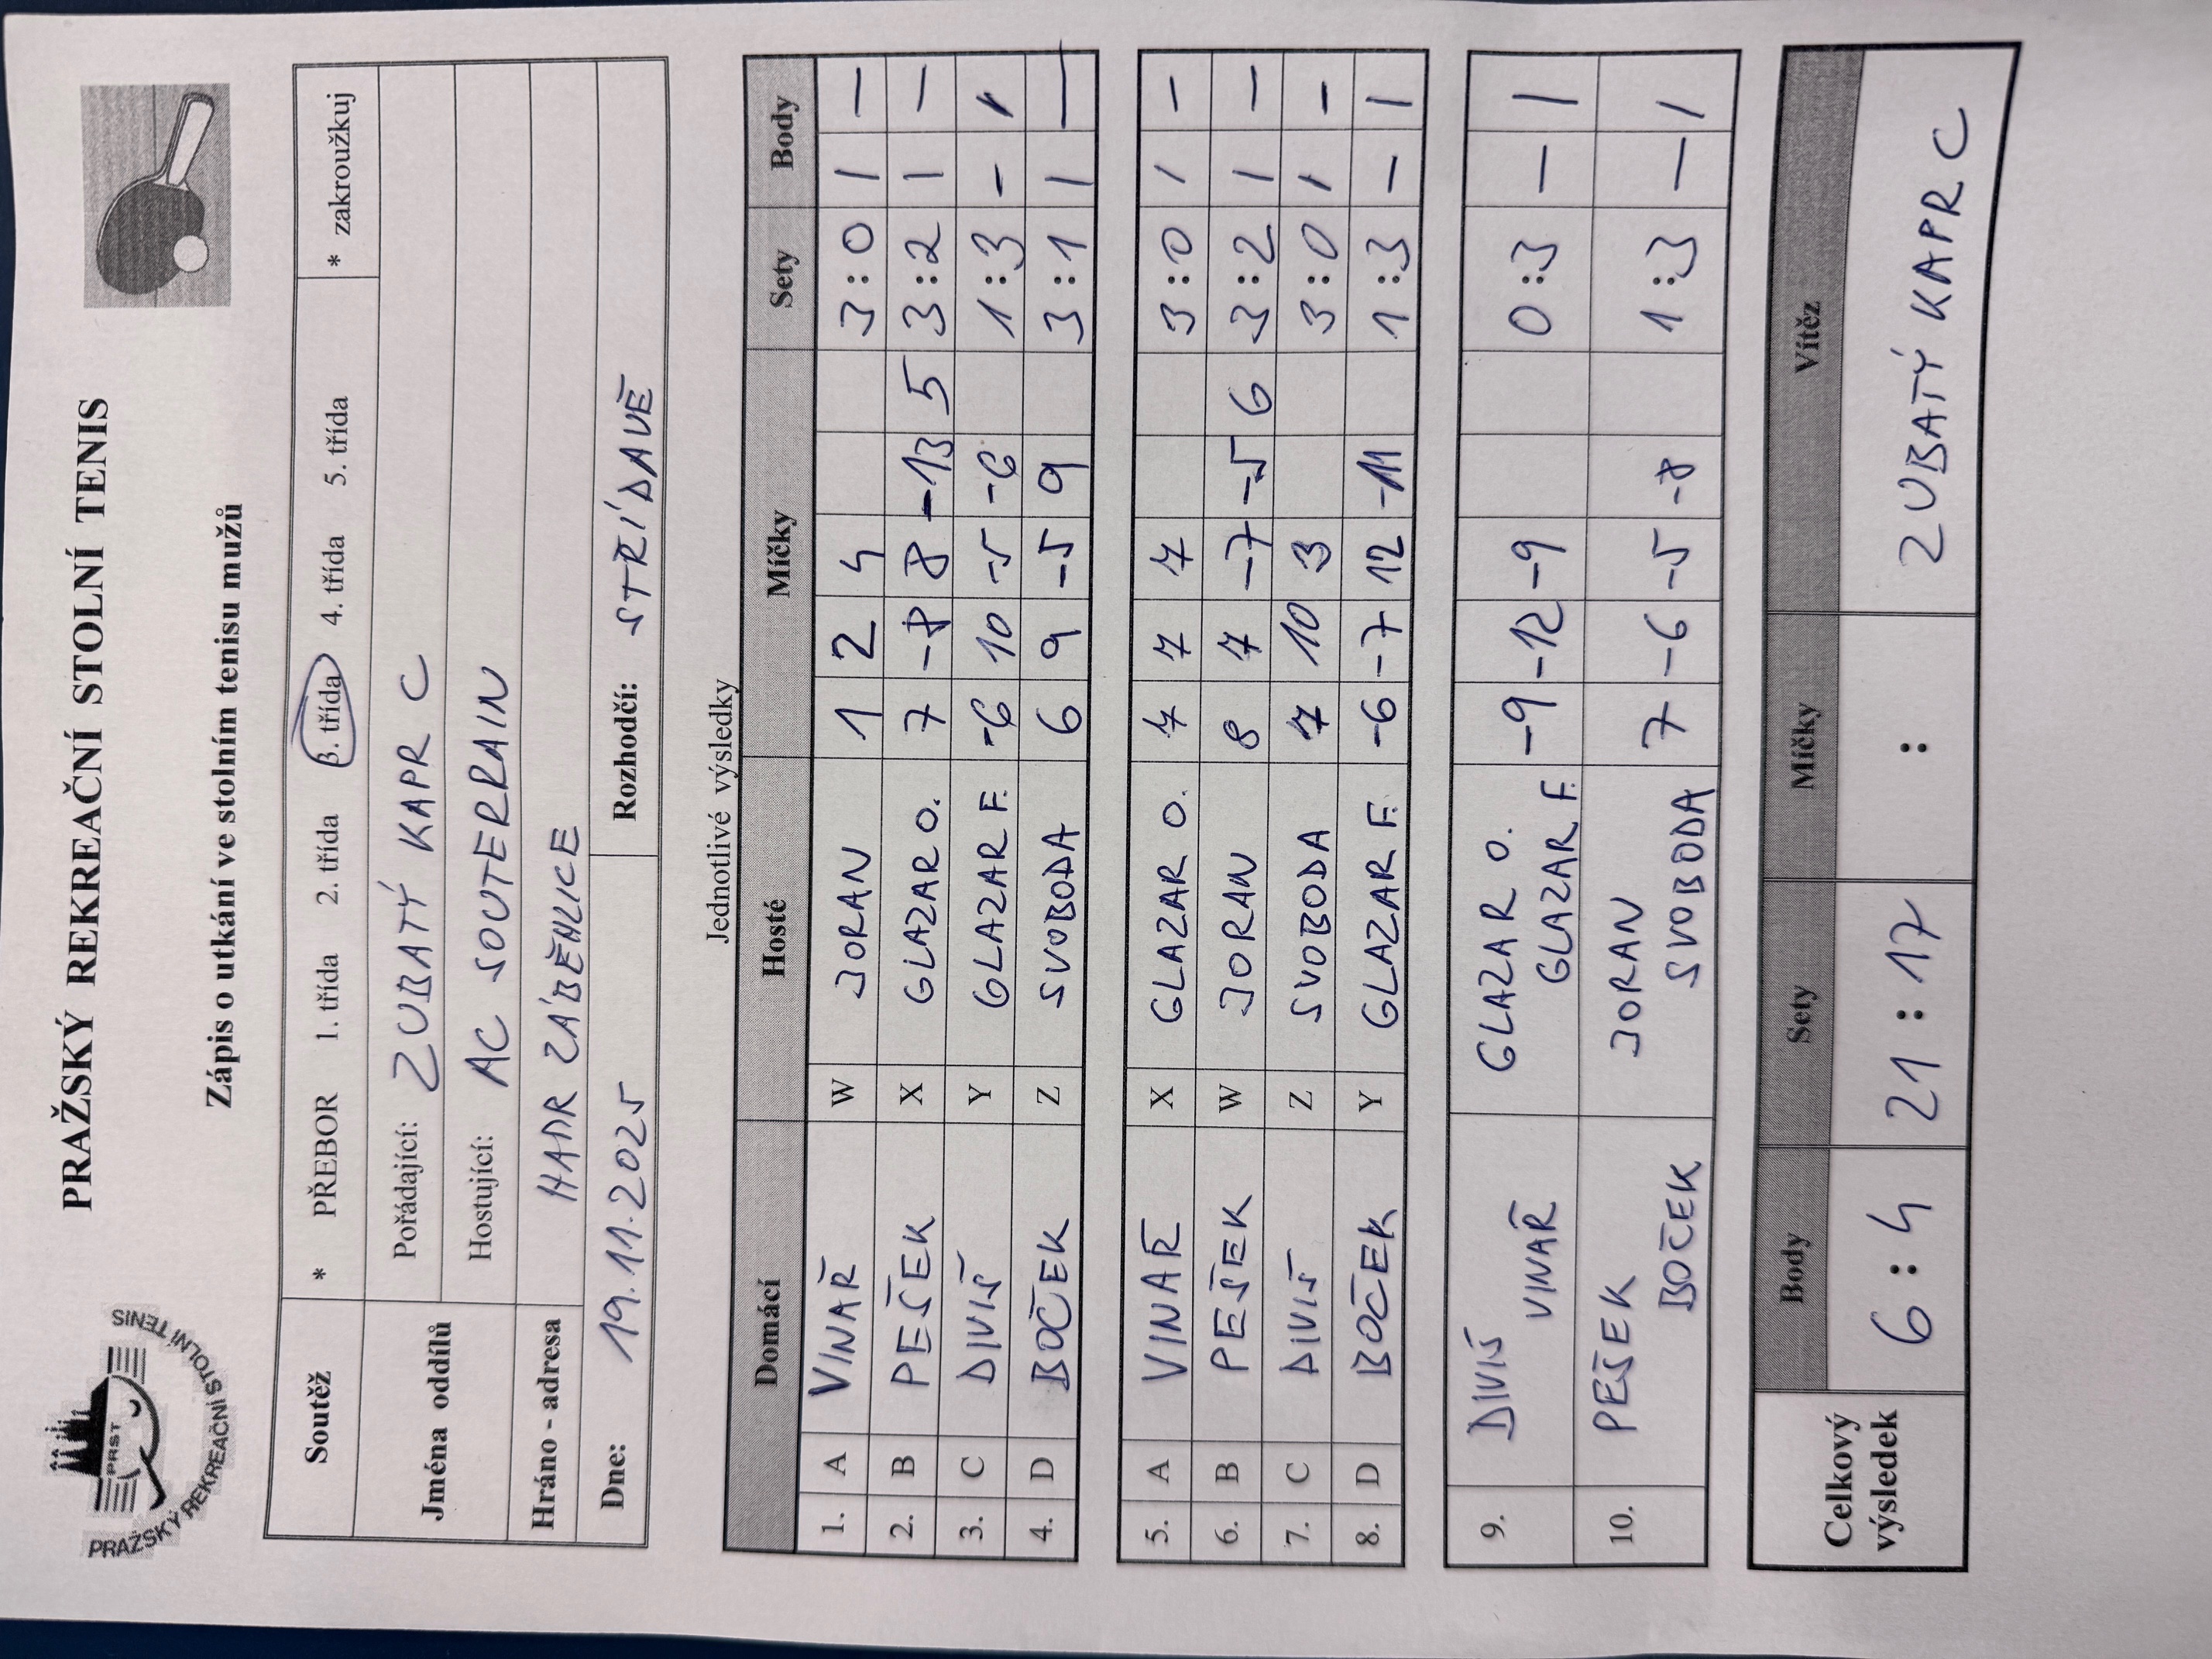 PRAŽSKÝ REKREAČNÍ STOLNÍ TENIS
PRST
PRAŽSKÝ REKREAČNÍ STOLNÍ TENIS
Zápis o utkání ve stolním tenisu mužů
Soutěž * PŘEBOR 1. třída 2. třída 3. třída 4. třída 5. třída * zakroužkuj
Jména oddílů Pořádající: ZUBATÝ KAPR C
Hostující: AC SOUTERRAIN
Hráno - adresa HADR ZÁBĚHLICE
Dne: 19.11.2025 Rozhodčí: STŘÍDAVĚ
Jednotlivé výsledky
Domácí Hosté Míčky Sety Body
1. A VINAŘ W JORAN 1 2 4 3:0 1 –
2. B PEŠEK X GLAZAR O. 7 -8 8 -13 5 3:2 1 –
3. C DIVIŠ Y GLAZAR F. -6 10 -5 -6 1:3 – 1
4. D BOČEK Z SVOBODA 6 9 -5 9 3:1 1 –
5. A VINAŘ X GLAZAR O. 7 7 7 3:0 1 –
6. B PEŠEK W JORAN 8 7 -7 -5 6 3:2 1 –
7. C DIVIŠ Z SVOBODA 7 10 3 3:0 1 –
8. D BOČEK Y GLAZAR F. -6 -7 12 -11 1:3 – 1
9. DIVIŠ GLAZAR O. -9 -12 -9 0:3 – 1
VINAŘ GLAZAR F.
10. PEŠEK JORAN 7 -6 -5 -8 1:3 – 1
BOČEK SVOBODA
Celkový výsledek Body Sety Míčky Vítěz
6:4 21:17 : ZUBATÝ KAPR C